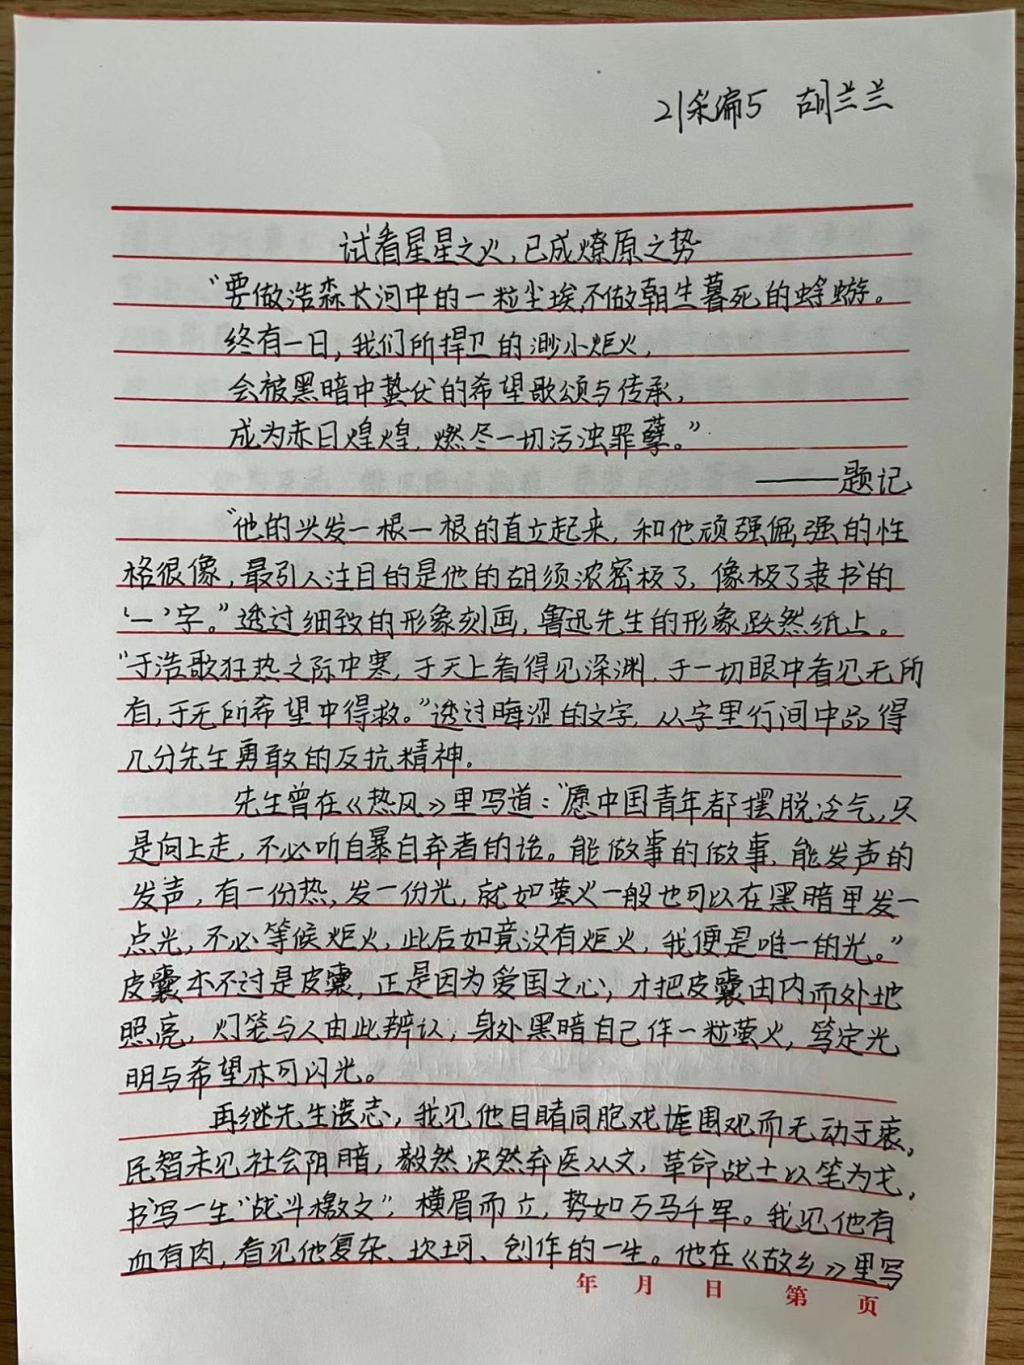 21采编5 胡兰兰
试看星星之火,已成燎原之势
“要做浩淼长河中的一粒尘埃,不做朝生暮死的蜉蝣。
终有一日,我们所捍卫的渺小炬火,
会被黑暗中蛰伏的希望歌颂与传承,
成为赤日煌煌,燃尽一切污浊罪孽。”
——题记
“他的头发一根一根的直立起来,和他顽强倔强的性
格很像,最引人注目的是他的胡须浓密极了,像极了隶书的
‘一’字。”透过细致的形象刻画,鲁迅先生的形象跃然纸上。
“于浩歌狂热之际中寒,于天上看得见深渊,于一切眼中看见无所
有,于无所希望中得救。”透过晦涩的文字,从字里行间中品得
几分先生勇敢的反抗精神。
先生曾在《热风》里写道:“愿中国青年都摆脱冷气,只
是向上走,不必听自暴自弃者的话。能做事的做事,能发声的
发声,有一份热,发一份光,就如萤火一般也可以在黑暗里发一
点光,不必等候炬火,此后如竟没有炬火,我便是唯一的光。”
皮囊本不过是皮囊,正是因为爱国之心,才把皮囊由内而外地
照亮,灯笼与人由此辨认,身处黑暗自己作一粒萤火,笃定光
明与希望亦可闪光。
再继先生遗志,我见他目睹同胞戏虐围观而无动于衷,
民智未见社会阴暗,毅然决然弃医从文,革命战士以笔为戈,
书写一生“战斗檄文”,横眉而立,势如万马千军。我见他有
血有肉,看见他复杂、坎坷、创作的一生。他在《故乡》里写
年 月 日 第 页